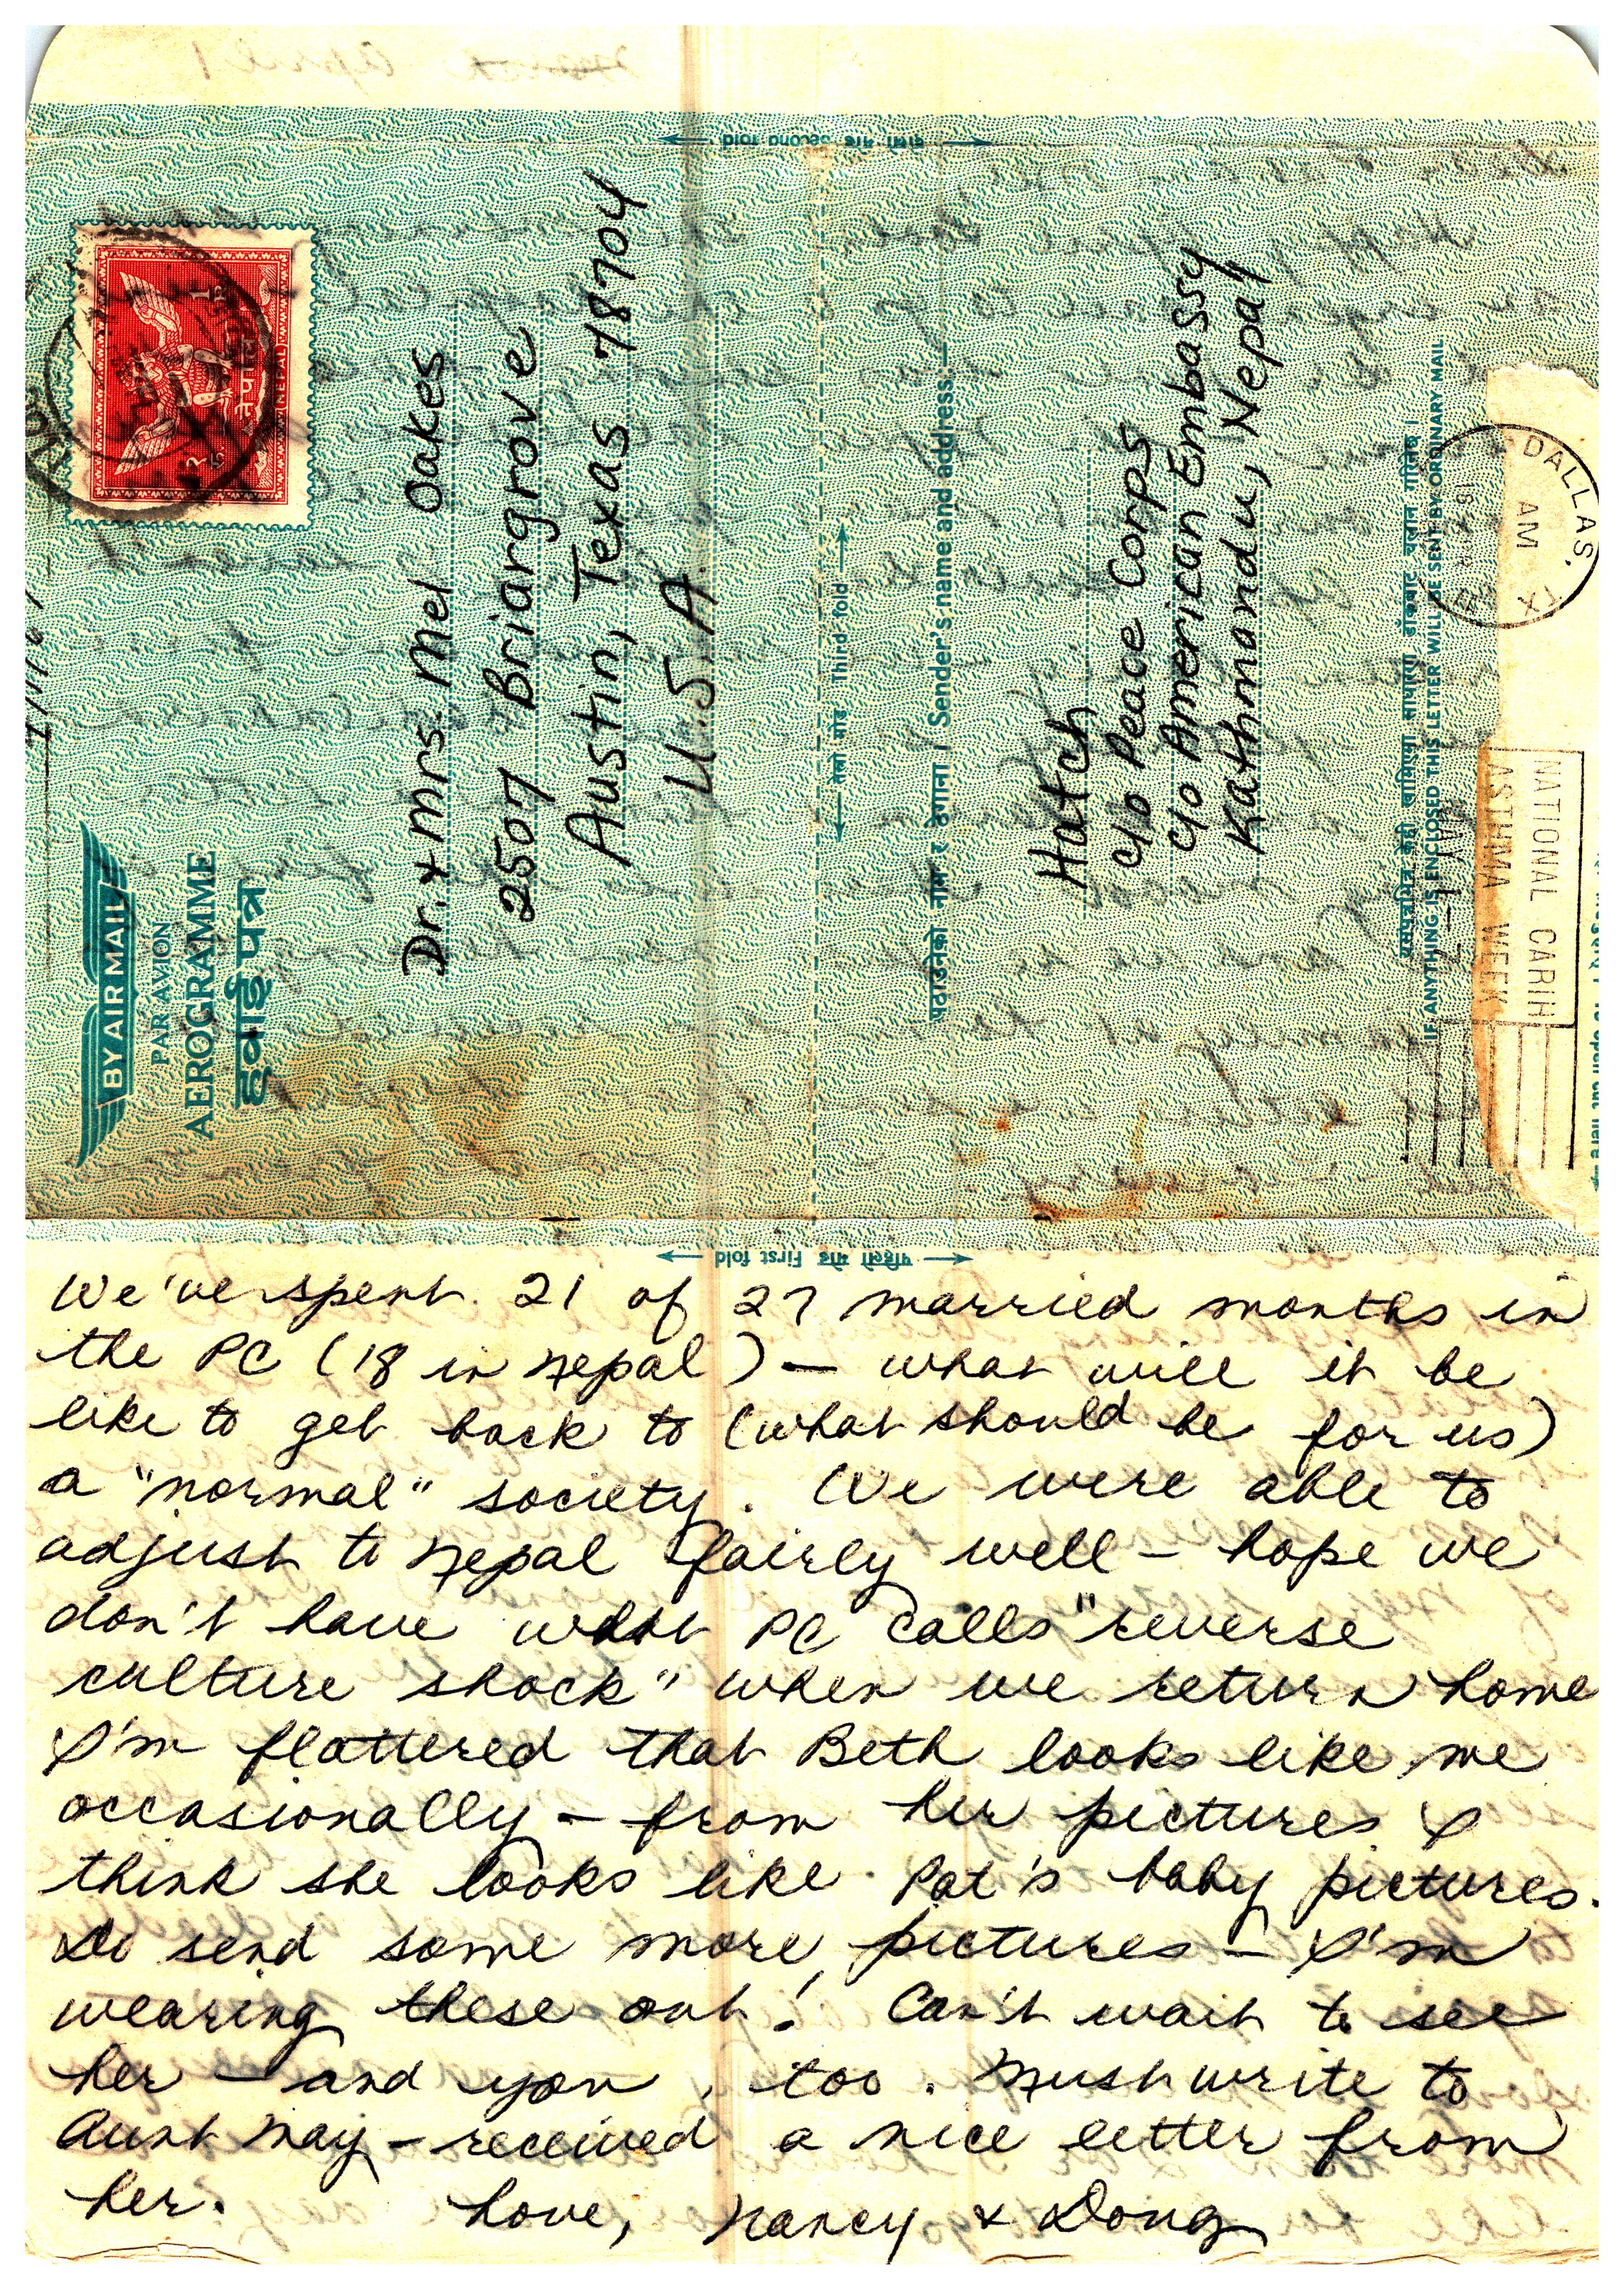 ← दोस्रो मोड Second fold →
नेपाल
(NEPAL)
BY AIR MAIL
PAR AVION
AEROGRAMME
हवाई पत्र
Dr. & Mrs. Mel Oakes
2507 Briargrove
Austin, Texas 78704
U.S.A.
← तेस्रो मोड Third fold →
पठाउनेको नाम र ठेगाना । Sender's name and address:—
Hatch
c/o Peace Corps
c/o American Embassy
Kathmandu, Nepal
IF ANYTHING IS ENCLOSED THIS LETTER WILL BE SENT BY ORDINARY MAIL
DALLAS,
AM
NATIONAL
ASTHMA WEEK
MAY 1-7
to open cut here
← पहिलो मोड First fold →
We've spent 21 of 27 married months in
the PC (18 in Nepal) — what will it be
like to get back to (what should be for us)
a "normal" society. We were able to
adjust to Nepal fairly well – hope we
don't have what PC calls "reverse
culture shock" when we return home
I'm flattered that Beth looks like me
occasionally – from her pictures I
think she looks like Pat's baby pictures.
Do send some more pictures – I'm
wearing these out! Can't wait to see
her – and you, too. Must write to
Aunt May – received a nice letter from
her. Love, Nancy & Doug